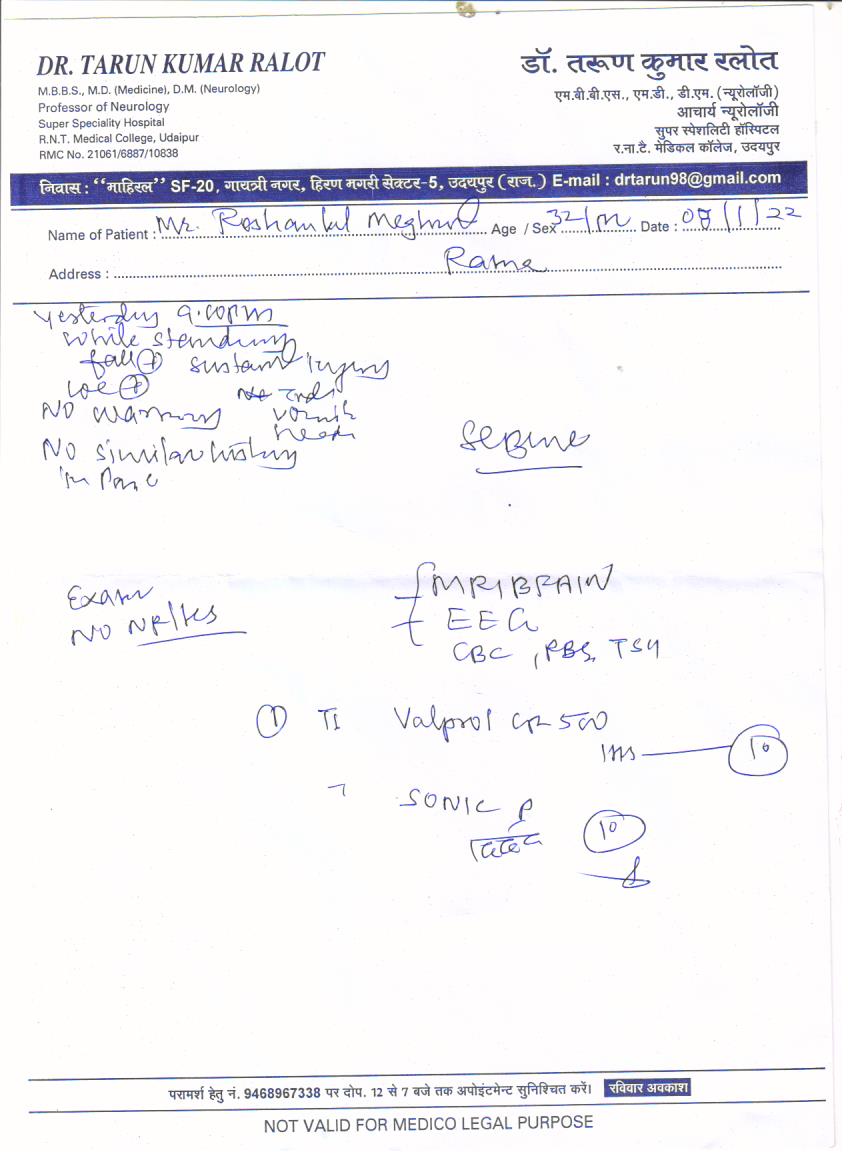 DR. TARUN KUMAR RALOT
M.B.B.S., M.D. (Medicine), D.M. (Neurology)
Professor of Neurology
Super Speciality Hospital
R.N.T. Medical College, Udaipur
RMC No. 21061/6887/10838
डॉ. तरूण कुमार रलोत
एम.बी.बी.एस., एम.डी., डी.एम. (न्यूरोलॉजी)
आचार्य न्यूरोलॉजी
सुपर स्पेशलिटी हॉस्पिटल
र.ना.टै. मेडिकल कॉलेज, उदयपुर
निवास : “माहिरल” SF-20, गायत्री नगर, हिरण मगरी सेक्टर-5, उदयपुर (राज.) E-mail : drtarun98@gmail.com
Name of Patient : Mr. Roshanlal Age / Sex 32/M Date : 08/1/22
Address : Rama
yesterday 9.00pm
while standing
fall + sustain injury
LOC +
NO warning
NO similar history
in
Exam
NO
MRI BRAIN
EEG
CBC, RBS, TSH
① T1 Valprol CR 500
1HS 10
SONIC P
10
परामर्श हेतु नं. 9468967338 पर दोप. 12 से 7 बजे तक अपोइंटमेन्ट सुनिश्चित करें। रविवार अवकाश
NOT VALID FOR MEDICO LEGAL PURPOSE